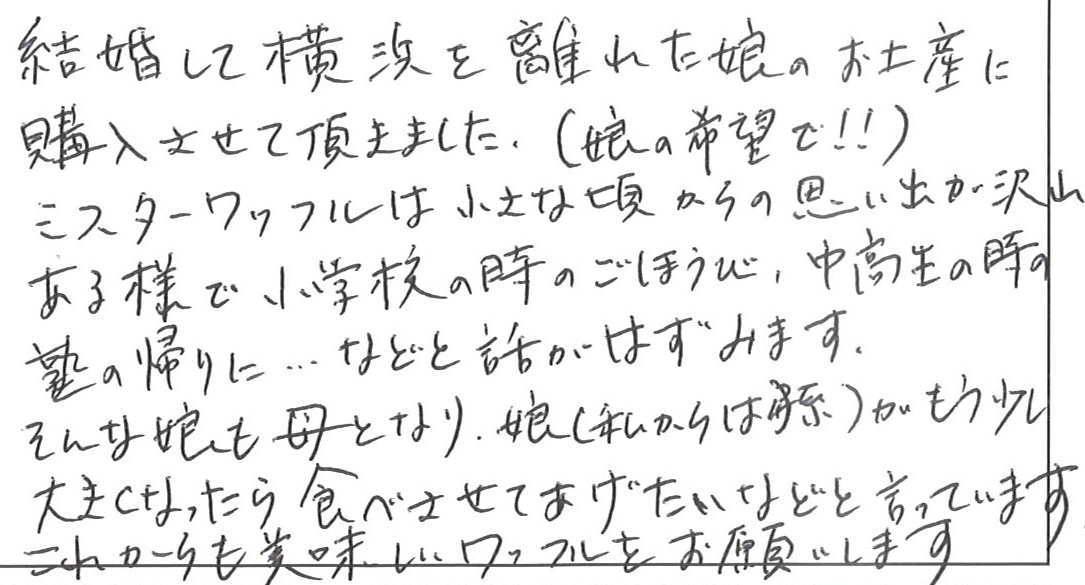 結婚して横浜を離れた娘のお土産に
購入させて頂きました。(娘の希望で!!)
ミスターワッフルは小さな頃からの思い出が沢山
ある様で小学校の時のごほうび、中高生の時の
塾の帰りに…などと話がはずみます。
そんな娘も母となり、娘(私からは孫)がもう少し
大きくなったら食べさせてあげたいなどと言っています
これからも美味しいワッフルをお願いします